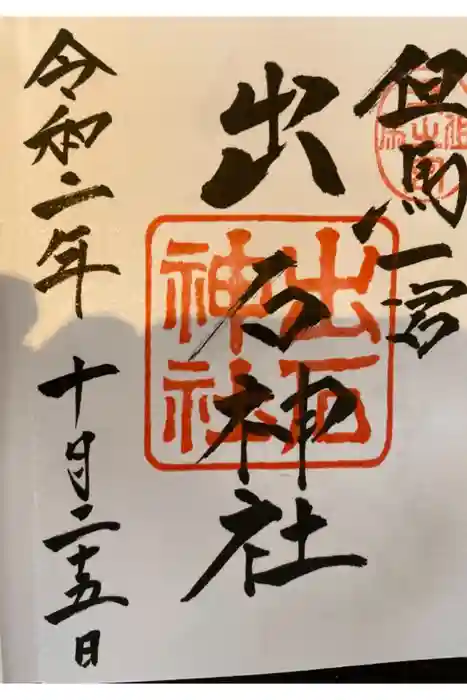 但馬一宮
出石神社
出石神社
令和二年 十月二十五日